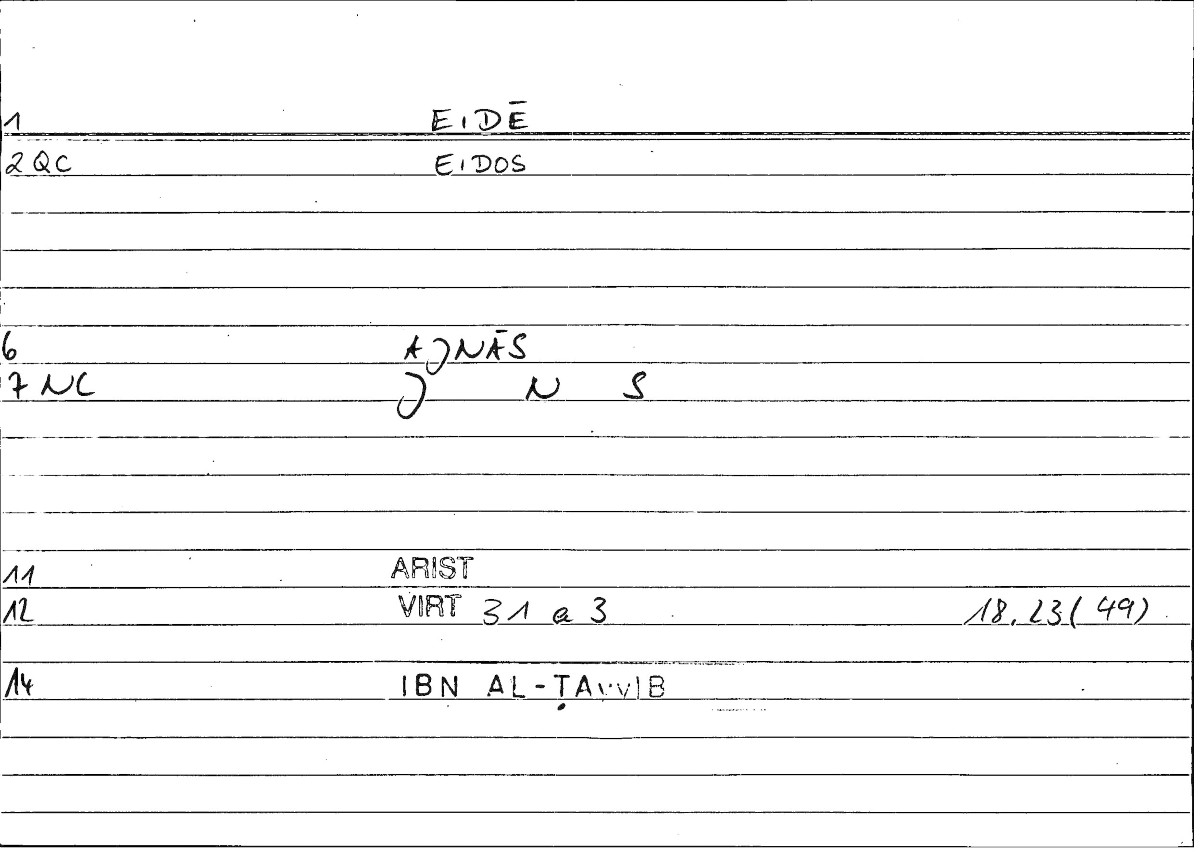 1 EIDĒ
2 QC EIDOS
6 AJNĀS
7 NC J N S
11 ARIST
12 VIRT 31 a 3 18.23 (49)
14 IBN AL-ṬAYYIB